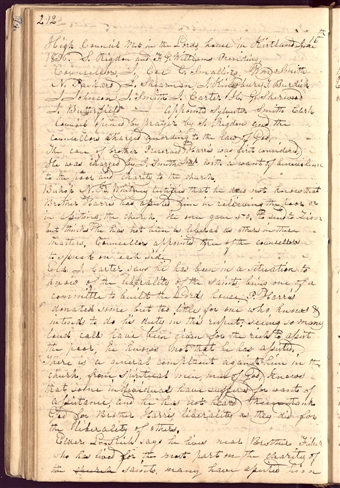 212
High Council Met in the Lords house in Kirtland June 16th
1836. S. Rigdon and F G Williams Presiding
Councellors, J. Coe S. Smallin, Noah
N. Packard J. Kingsbury J. Burdick
J. Johnson J. Smith J. Carter
J. Butterfield appointed Sylvester Smith Clerk
Council opened by prayer by S. Rigdon and the
councellors charged according to the law of God
The case of brother Preserved Harris was first considered
He was charged by with a want of benevolence
to the poor and charity to the church
Bishop N. K. Whitney testified that he does not know that
Brother Harris has assisted him in relieving the poor or
in assisting the church, he once gave to send to Zion
but thinks He has not been as liberal as others in other
matters, Councellors appointed two of the councellors
to speak on each side,
J. Carter says he has been in a situation to
know of the liberality of the saints being one of a
committee to build the Lords house P Harris
donated some but too little for one who knows &
intends to do his duty in this respect seeing so many
loud calls have been given for the rich to assist
the poor, he knows that he has assisted
There is a general complaint against him in the
church, from spiritual men, men of God, knows
that some individuals have suffered for want of
assistance, and he has not heard them thank
God for Brother Harris liberality as they did for
the liberality of others,
Elder says he lives near Brother Fisher
who has lived for the most part on the charity of
the church saints, many have assisted him